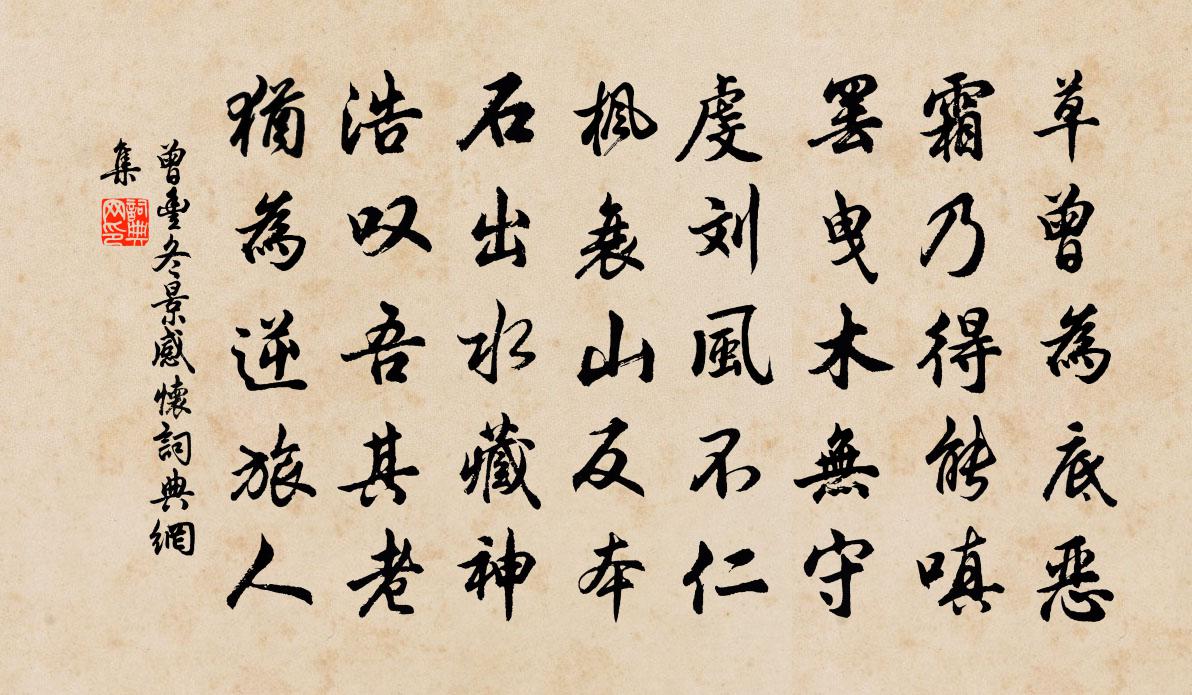 草曾為底惡
霜乃得能嗔
罢曳木無守
虔刘風不仁
枫衰山反本
石出水藏神
浩叹吾其老
猶為逆旅人
曾豊冬景感懷詞典網
集
詞典
网印